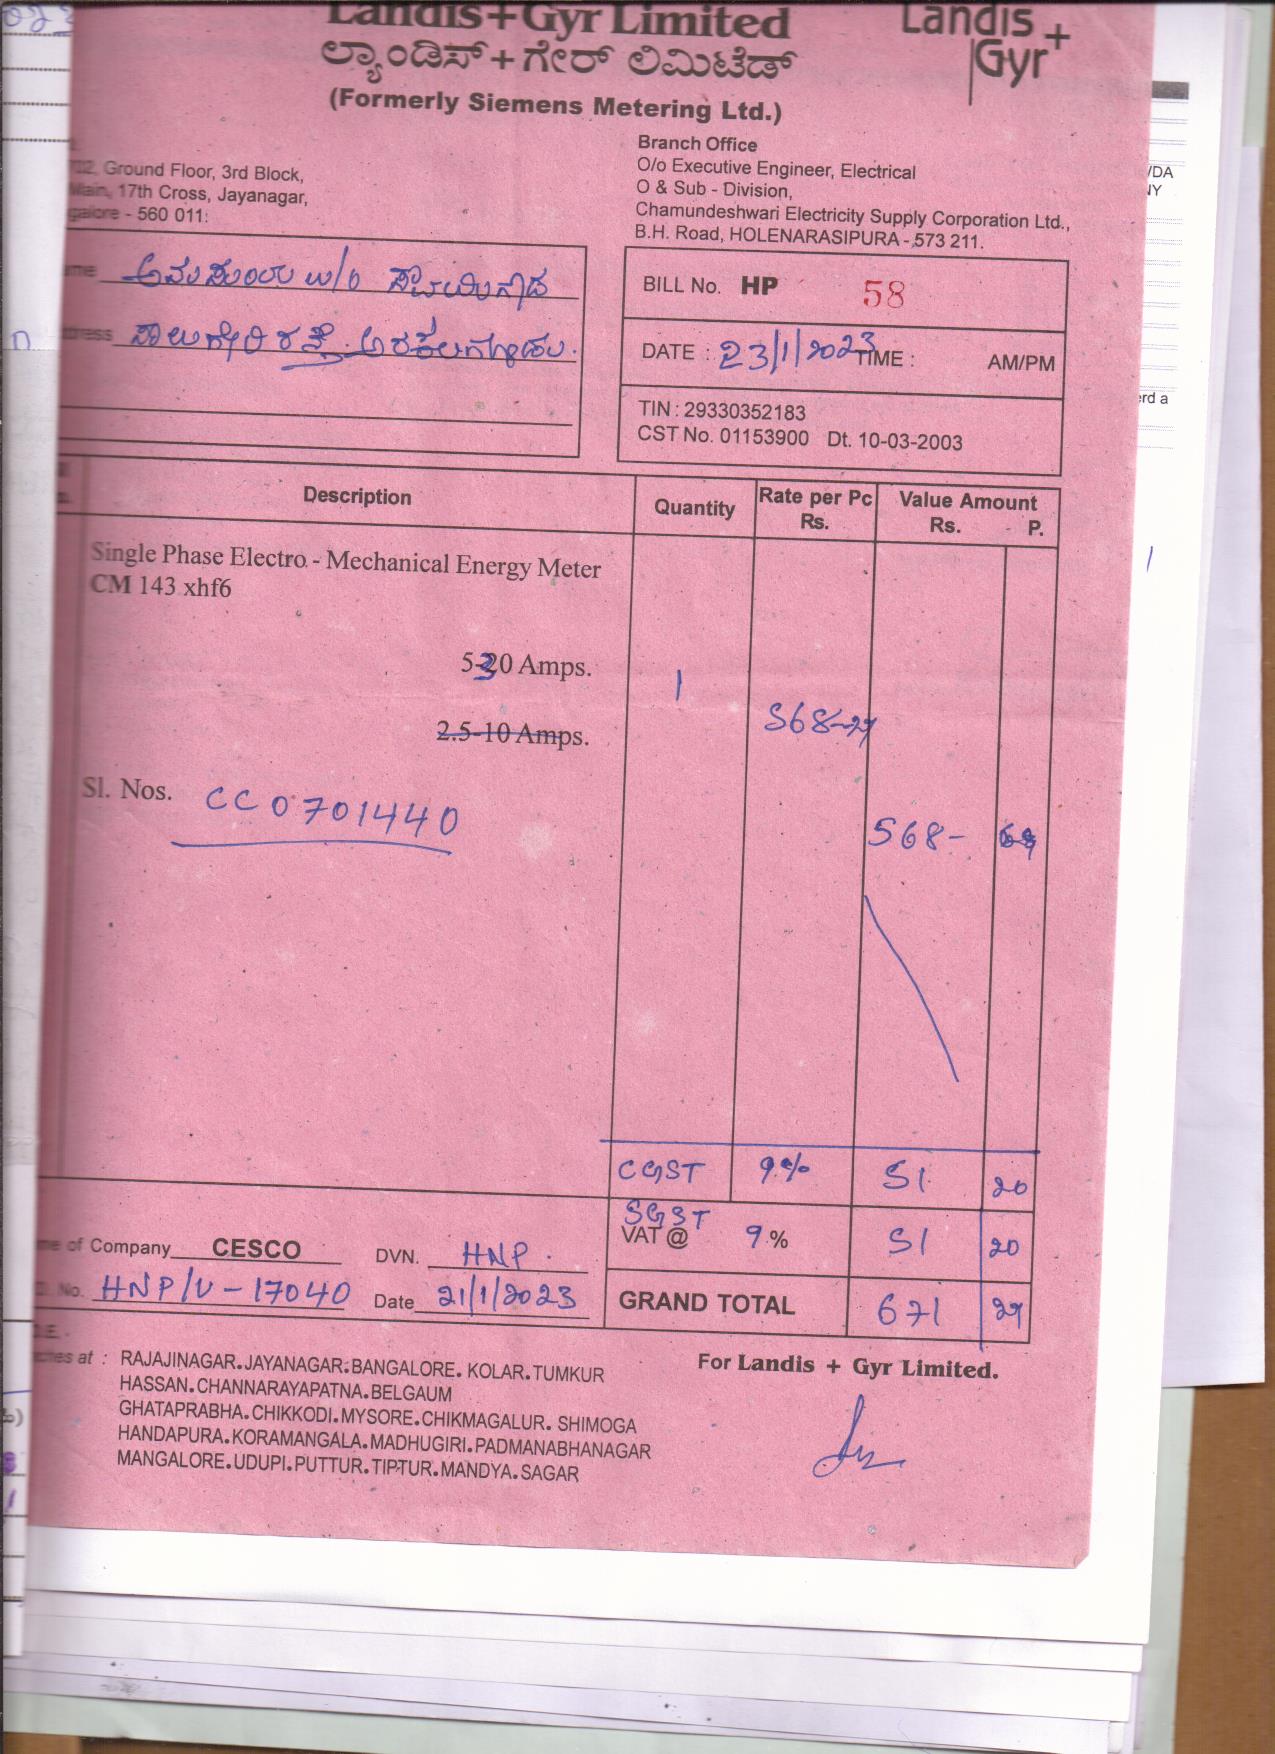 Landis+Gyr Limited
ಲ್ಯಾಂಡಿಸ್+ಗೇರ್ ಲಿಮಿಟೆಡ್
(Formerly Siemens Metering Ltd.)
Landis + Gyr
Ground Floor, 3rd Block,
Main, 17th Cross, Jayanagar,
galore - 560 011:
Branch Office
O/o Executive Engineer, Electrical
O & Sub - Division,
Chamundeshwari Electricity Supply Corporation Ltd.,
B.H. Road, HOLENARASIPURA - 573 211.
w/o
ರಸ್ತೆ
BILL No. HP 58
DATE : 23/1/2023 TIME : AM/PM
TIN : 29330352183
CST No. 01153900 Dt. 10-03-2003
Description Quantity Rate per Pc Rs. Value Amount Rs. P.
Single Phase Electro - Mechanical Energy Meter
CM 143 xhf6
5-30 Amps. 1
2.5-10 Amps. 568-
Sl. Nos. CC0701440
568-
CGST 9% 51 20
SGST
VAT @ 9 % 51 20
GRAND TOTAL 671
of Company CESCO DVN. HNP.
No. HNP/V-17040 Date 21/1/2023
at : RAJAJINAGAR.JAYANAGAR.BANGALORE. KOLAR.TUMKUR
HASSAN.CHANNARAYAPATNA.BELGAUM
GHATAPRABHA.CHIKKODI.MYSORE.CHIKMAGALUR. SHIMOGA
HANDAPURA.KORAMANGALA.MADHUGIRI.PADMANABHANAGAR
MANGALORE.UDUPI.PUTTUR.TIPTUR.MANDYA.SAGAR
For Landis + Gyr Limited.